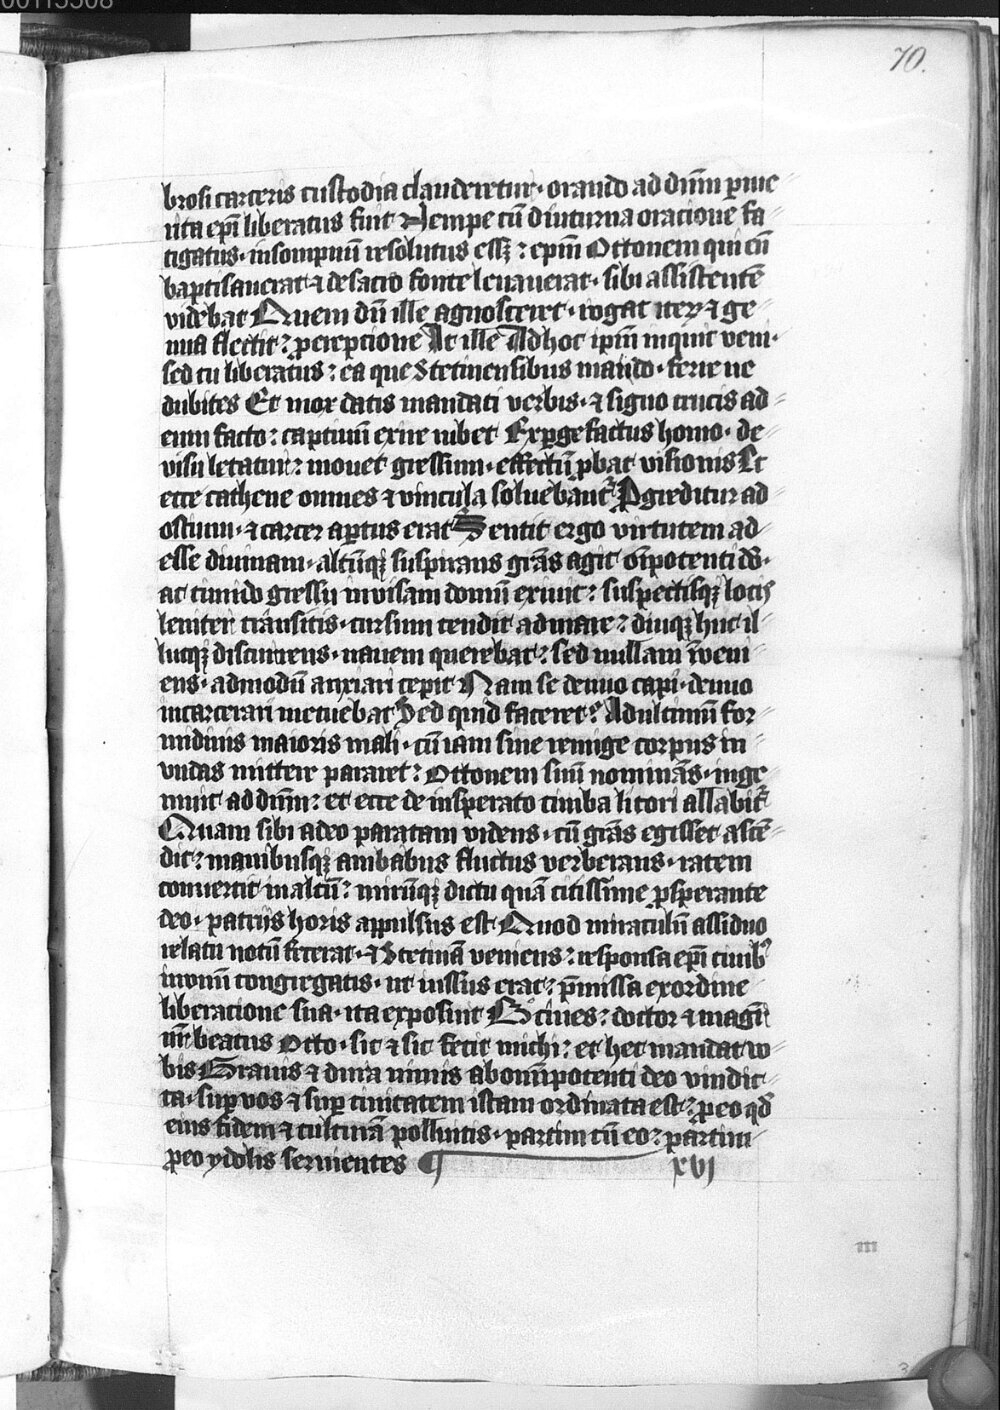 00113308
70.
brosi carceris custodia clauderetur · orando ad dn̄m p̱ mer
ita ep̄i liberatus fuit Nempe cū diuturna oracione fa
tigatus · in sompnū resolutus essꝫ : ep̄m Ottonem qui eū
baptisauerat ⁊ de sacro fonte leuauerat · sibi assistentē
videbat Quem dū ille agnosceret · rogat iteꝝ ⁊ ge
nua flectit : ꝓ ereptione At ille Ad hoc ip̄m inquit veni ·
sed tu liberatus : ea que Stetinensibus mando · ferre ne
dubites Et mox datis mandati verbis · ⁊ signo crucis ad
eum facto : captiuū exire iubet Exp̱gefactus homo · de
visu letatur : mouet gressum · effectū ꝓbat visionis Et
ecce cathene omnes ⁊ vincula soluebant᷑ Ꝓgreditur ad
ostium · ⁊ carcer ap̱tus erat Sentit ergo virtutem ad
esse diuinam · altūqꝫ suspirans grās agit om̄potenti dō ·
ac timido gressu inuisam domū exiuit : suspectisqꝫ locis
leniter transitis · cursum tendit ad mare : diuqꝫ huc il
lucqꝫ discurrens · nauem querebat : sed nullam īueni
ens · admodū anxiari cepit Nam se denuo capi · denuo
incarcerari metuebat Sed quid faceret : Ad ultimū for
midinis maioris mali · cū iam sine remige corpus in
vndas mittere pararet : Ottonem suū nominās · inge
muit ad dn̄m : et ecce de insperato cimba litori allabit᷑
Quam sibi a deo paratam videns · cū grās egisset ascē
dit : manibusqꝫ ambabus fluctus verberans · ratem
conuertit in altū : mirūqꝫ dictu quā citissime ꝓsperante
deo · patriis horis appulsus est Quod miraculū assiduo
relatu notū fecerat · ⁊ Stetinā veniens : responsa ep̄i ciuibꝰ
in vnū congregatis · ut iussus erat : p̄missa ex ordine
liberatione sua · ita exposuit O ciues : doctor ⁊ magr̄
nr̄ beatus Otto · sic ⁊ sic fecit michi : et hec mandat vo
bis Grauis ⁊ dura nimis ab om̄ipotenti deo vindic
ta · sup̱ vos ⁊ sup̱ ciuitatem istam ordinata est : ꝓ eo qd̄
eius fidem ⁊ culturā polluitis · partim cū eo : partim
ꝓ eo ydolis seruientes ¶ xvi
m